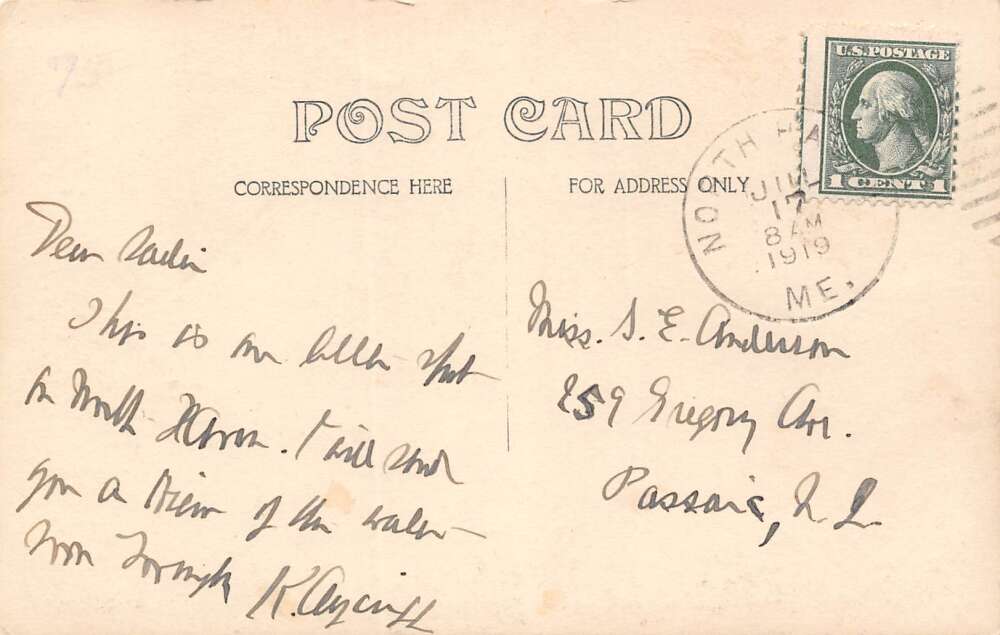 POST CARD
CORRESPONDENCE HERE
FOR ADDRESS ONLY
U.S. POSTAGE
1 CENT 1
NORTH HA
JUL
17
8 AM
1919
ME.
Dear Sadie
This is our spot
on North Haven. I will send
you a view of the water
K.
Miss. S. E. Anderson
259 Gregory Ave.
Passaic, N. J.